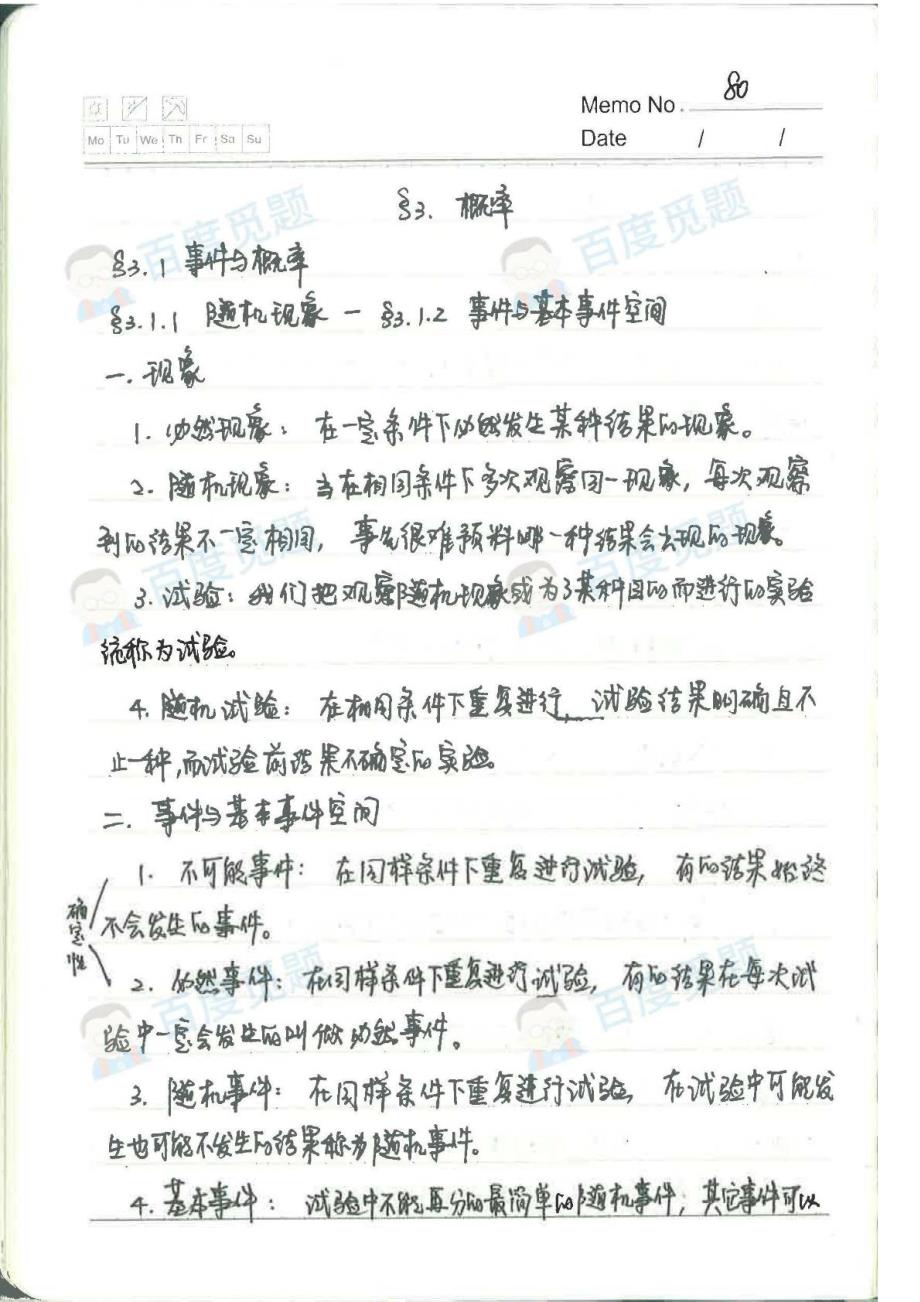 Memo No. 80
Mo Tu We Th Fr Sa Su
Date / /
§3. 概率
§3.1 事件与概率
§3.1.1 随机现象 — §3.1.2 事件与基本事件空间
一. 现象
1. 必然现象：在一定条件下必然发生某种结果的现象。
2. 随机现象：当在相同条件下多次观察同一现象，每次观察
到的结果不一定相同，事先很难预料哪一种结果会出现的现象。
3. 试验：我们把观察随机现象或为了某种目的而进行的实验
统称为试验。
4. 随机试验：在相同条件下重复进行，试验结果明确且不
止一种，而试验前结果不确定的实验。
二. 事件与基本事件空间
1. 不可能事件：在同样条件下重复进行试验，有的结果始终
不会发生的事件。
确定性
2. 必然事件：在同样条件下重复进行试验，有的结果在每次试
验中一定会发生的叫做必然事件。
3. 随机事件：在同样条件下重复进行试验，在试验中可能发
生也可能不发生的结果称为随机事件。
4. 基本事件：试验中不能再分的最简单的随机事件，其它事件可以
百度觅题
百度觅题
百度觅题
百度觅题
百度觅题
百度觅题